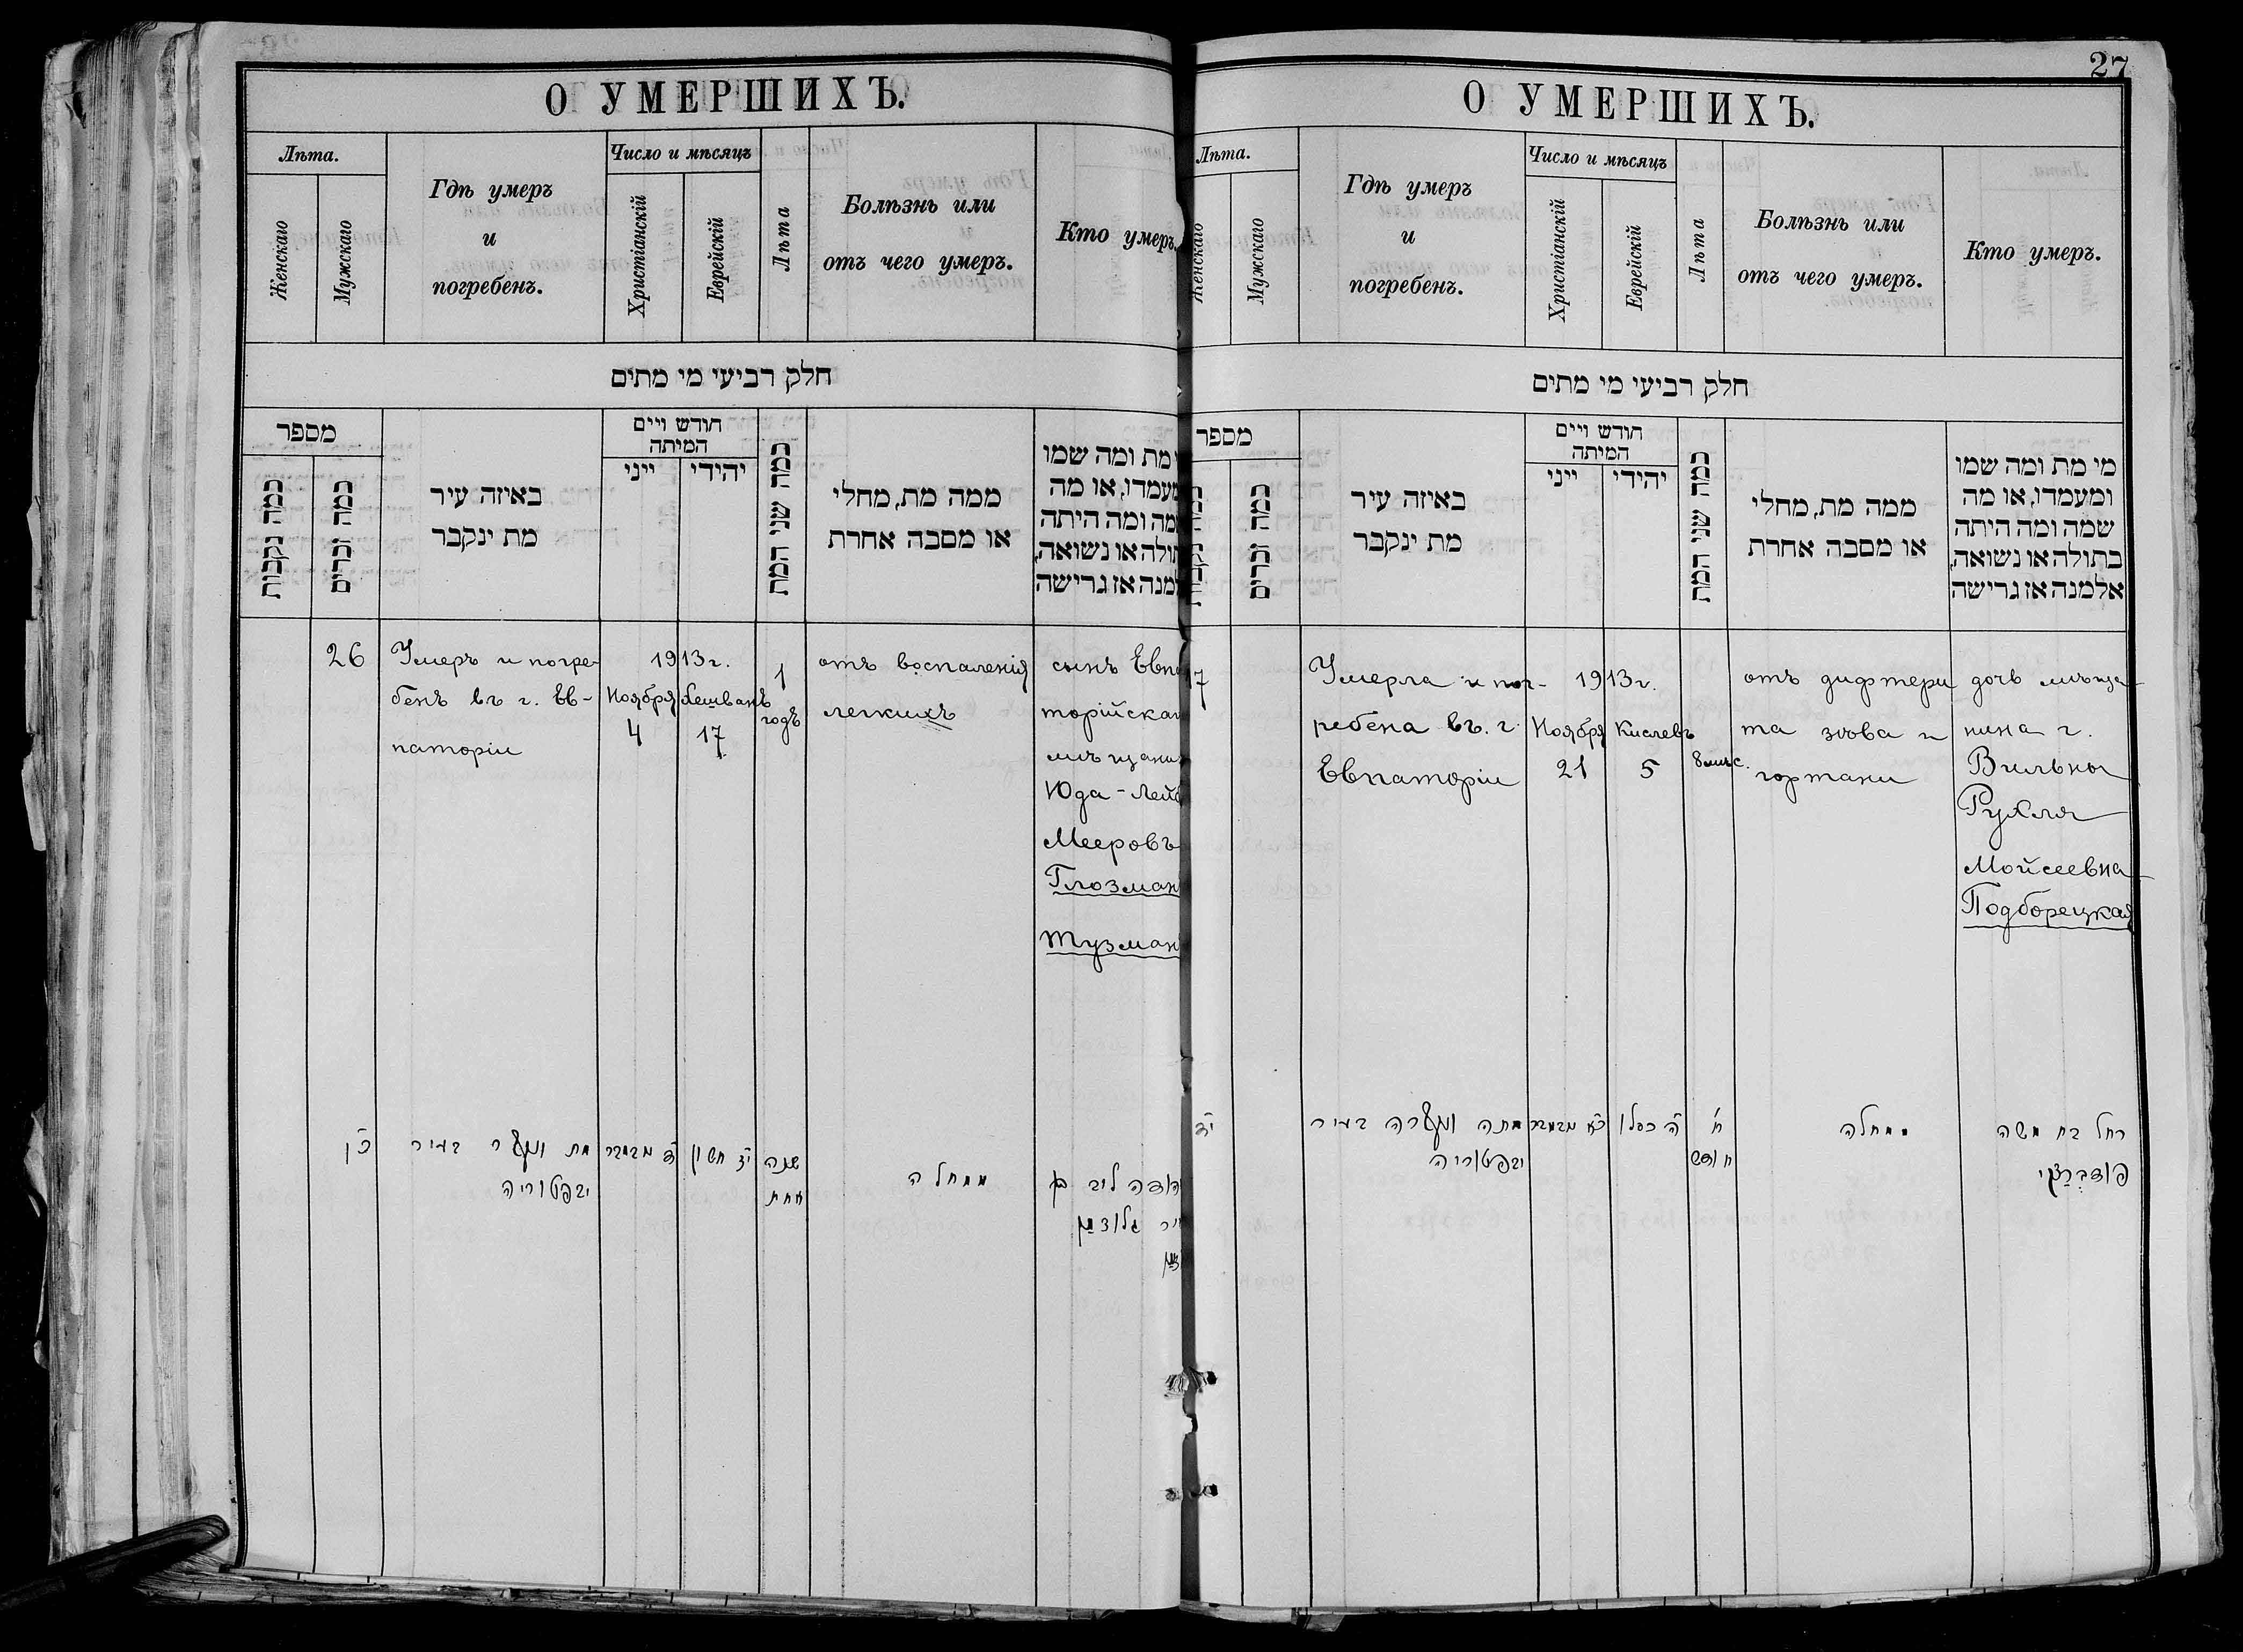 О УМЕРШИХЪ.
Лѣта.
Женскаго
Мужскаго
Гдѣ умеръ
и
погребенъ.
Число и мѣсяцъ
Христіанскій
Еврейскій
Лѣта
Болѣзнь или
отъ чего умеръ.
Кто умеръ.
חלק רביעי מי מתים
מספר
כמה נקבות
כמה זכרים
באיזה עיר
מת ינקבר
חודש ויים
המיתה
ייני
יהידי
כמה שני המת
ממה מת, מחלי
או מסבה אחרת
מת ומה שמו
ומה היתה
או נשואה,
אז גרישה
26
Умеръ и погре-
бенъ въ г. Ев-
паторіи
1913 г.
Ноября
4
Хешванъ
17
1
годъ
отъ воспаленія
легкихъ
сынъ Евпа
торійскаг
мѣщани
Юда-Лейб
Мееровъ
Глозман
Тузман
כ״ו
מת ונקבר בעיר
יבפטוריה
ד׳ נבמבר
י״ז חשון
שנה
אחת
ממחלה
ליב בן
גלוזמן
О УМЕРШИХЪ.
27
Лѣта.
Женскаго
Мужскаго
Гдѣ умеръ
и
погребенъ.
Число и мѣсяцъ
Христіанскій
Еврейскій
Лѣта
Болѣзнь или
отъ чего умеръ.
Кто умеръ.
חלק רביעי מי מתים
מספר
כמה זכרים
באיזה עיר
מת ינקבר
חודש ויים
המיתה
ייני
יהידי
כמה שני המת
ממה מת, מחלי
או מסבה אחרת
מי מת ומה שמו
ומעמדו, או מה
שמה ומה היתה
בתולה או נשואה,
אלמנה אז גרישה
7
Умерла и пог-
ребена въ. г.
Евпаторіи
1913 г.
Ноября
21
Кислевъ
5
8 мѣс.
отъ дифтери
та зѣва и
гортани
дочь мѣща-
нина г.
Вильны
Рухля
Мойсеевна
Подборецкая
מתה ונקברה בעיר
יבפטוריה
כ״א נבמבר
ה׳ כסלו
חודש
ממחלה
רחל בת משה